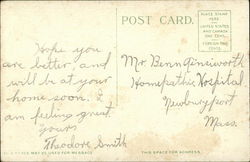 POST CARD.
PLACE STAMP
HERE
UNITED STATES
AND CANADA
ONE CENT
FOREIGN TWO
CENTS
Hope you
are better, and
will be at your
home soon. I
am feeling great.
Yours
Theodore Smith
Mr.
Homepathic Hospital
Newburyport
Mass.
MAY BE USED FOR MESSAGE
THIS SPACE FOR ADDRESS.